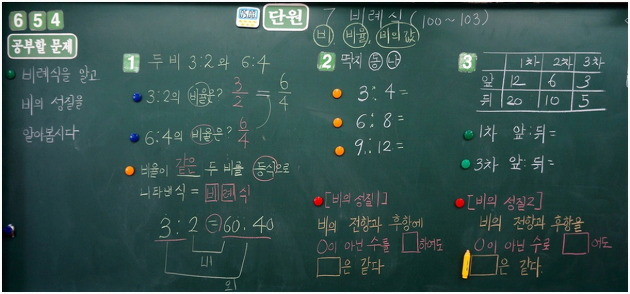 6 5 4
단원 7 비례식 (100~103)
비 비율, 비의 값
공부할 문제
비례식을 알고
비의 성질을
알아봅시다
1 두 비 3:2와 6:4
3:2의 비율은? 3/2 = 6/4
6:4의 비율은? 6/4
비율이 같은 두 비를 등식으로
나타낸 식 = 비례식
3:2=60:40
내
외
2 딱지 동 나
3:4=
6:8=
9:12=
[비의 성질1]
비의 전항과 후항에
0이 아닌 수를 □하여도
□은 같다
3
1차 2차 3차
앞 12 6 3
뒤 20 10 5
1차 앞:뒤=
3차 앞:뒤=
[비의 성질2]
비의 전항과 후항을
0이 아닌 수로 □어도
□은 같다.